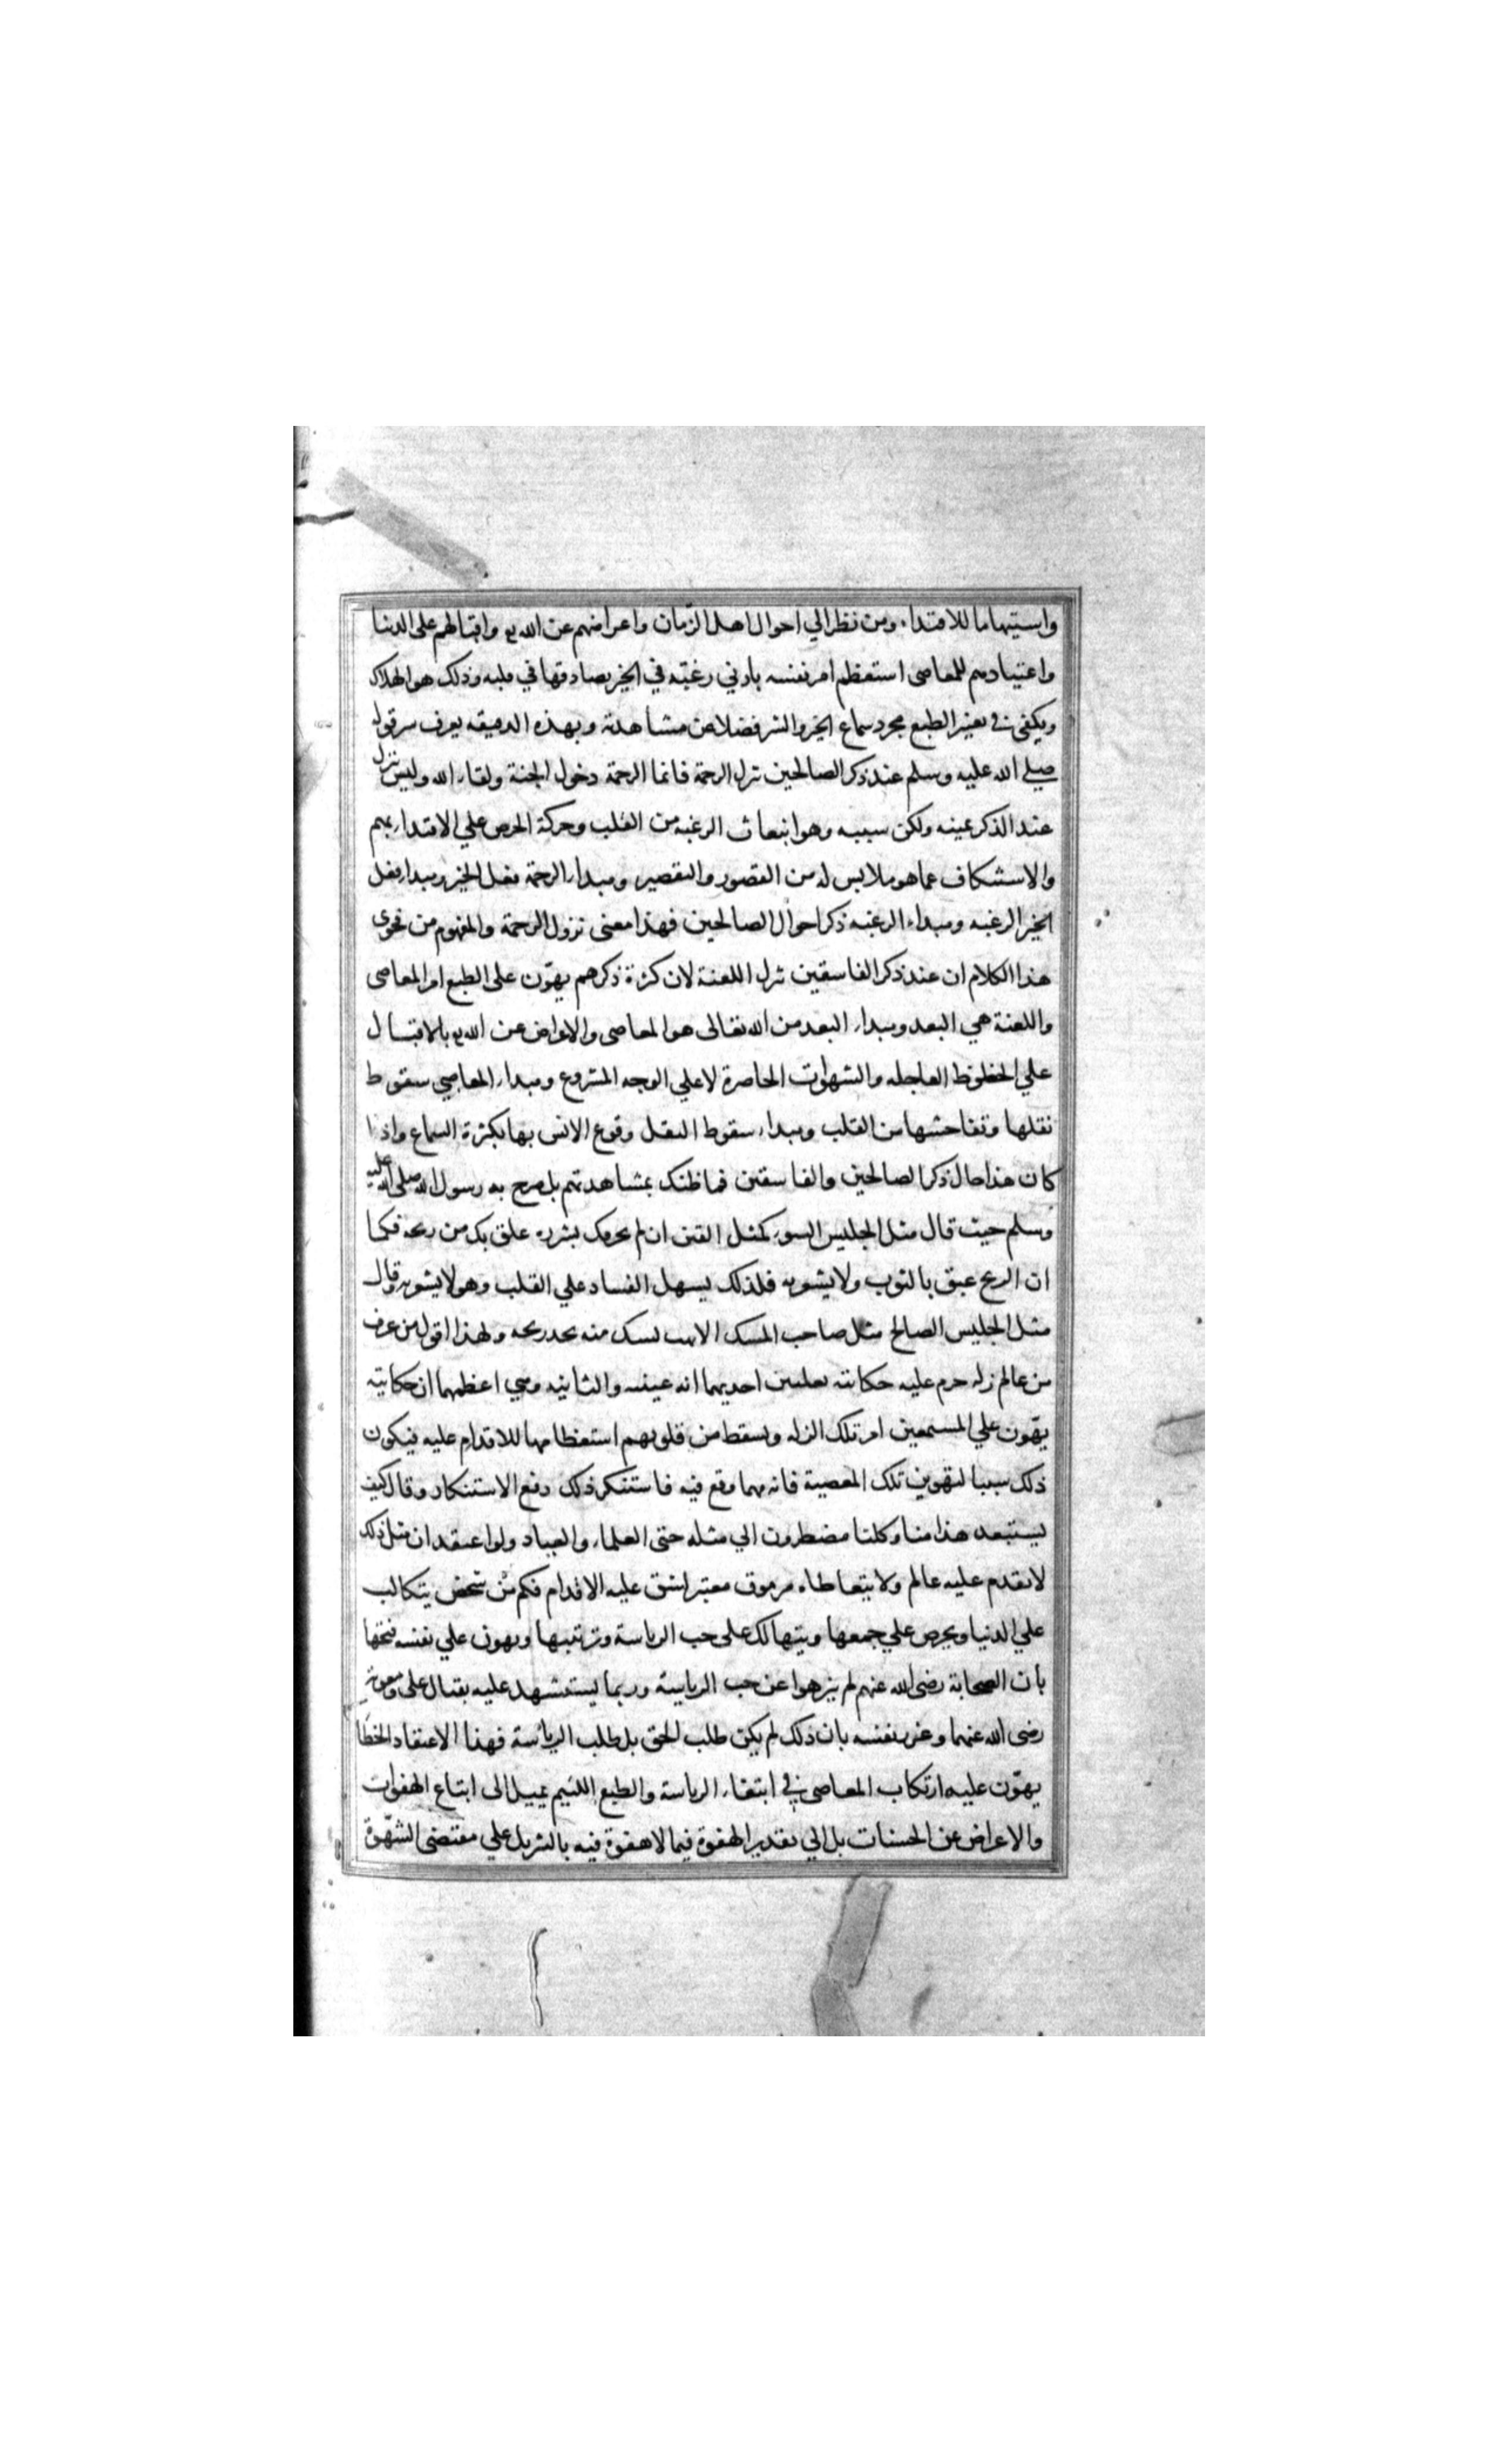 واستيهاما للاقتداء ومن نظر الي احوال اهل الزّمان واعراضهم عن الله تع واقبالهم على الدنيا
واعتيادهم للمعاصى استعظم امر نفسه بادني رغبته في الخير يصادفها في قلبه وذلك هو الهلاك
ويكفى في تغيير الطبع مجرد سماع الخير والشر فضلا عن مشاهدته وبهذه الدقيقه يعرف سر قوله
صلي الله عليه وسلم عند ذكر الصالحين تنزل الرحمة فانما الرحمة دخول الجنة ولقاء الله وليس تنزل
عند الذكر عينه ولكن سببه وهو انبعاث الرغبه من القلب وحركة الحرص علي الاقتداء بهم
والاستنكاف عما هو ملابس له من القصور والتقصير ومبداء الرحمة فعل الخير ومبداء فعل
الخير الرغبه ومبداء الرغبه ذكر احوال الصالحين فهذا معنى نزول الرحمة والمفهوم من فحوى
هذا الكلام ان عند ذكر الفاسقين تنزل اللعنة لان كثرة ذكرهم يهوّن على الطبع امر المعاصى
واللعنة هي البعد ومبداء البعد من الله تعالى هو المعاصى والاعراض عن الله تع بالاقبال
علي الحظوظ العاجله والشهوات الحاضرة لا علي الوجه المشروع ومبداء المعاصي سقوط
ثقلها وتفاحشها من القلب ومبداء سقوط الثقل وقوع الانس بها بكثرة السماع واذا
كان هذا حال ذكر الصالحين والفاسقين فما ظنك بمشاهدتهم بل صرح به رسول الله صلى الله عليه
وسلم حيث قال مثل الجليس السوء كمثل القين ان لم يحرقك بشرره علق بك من ريحه فكما
ان الريح عبق بالثوب ولا يشعر به فلذلك يسهل الفساد علي القلب وهو لا يشعر به وقال
مثل الجليس الصالح مثل صاحب المسك ان لم يهب لك منه تجد ريحه ولهذا اقول من عرف
من عالم زله حرم عليه حكايته لعلتين احديهما انه غيبه والثانيه وهي اعظمهما ان حكايته
يهّون علي المستمعين امر تلك الزله ويسقط من قلوبهم استعظامها للاقدام عليه فيكون
ذلك سببا لتهوين تلك المعصية فانه مهما وقع فيه فاستنكر ذلك دفع الاستنكار وقال كيف
يستبعد هذا منا وكلنا مضطرون الي مثله حتى العلماء والعباد ولو اعتقد ان مثل ذلك
لا يقدم عليه عالم ولا يتعاطاه مرموق معتبر لشق عليه الاقدام فكم من شخص يتكالب
علي الدنيا ويحرص علي جمعها ويتهالك على حب الرياسة وتزيينها ويهون علي نفسه قبحها
بأن الصحابة رضى الله عنهم لم ينزهوا عن حب الرياسة وربما يستشهد عليه بقتال على ومعوية
رضى الله عنهما وغر نفسه بان ذلك لم يكن طلب الحق بل طلب الرياسة فهذا الاعتقاد الخطا
يهوّن عليه ارتكاب المعاصى في ابتغاء الرياسة والطبع اللئيم يميل الى اتباع الهفوات
والاعراض عن الحسنات بل الي تقدير الهفوة فيما لا هفوة فيه بالتنزيل علي مقتضى الشهوة